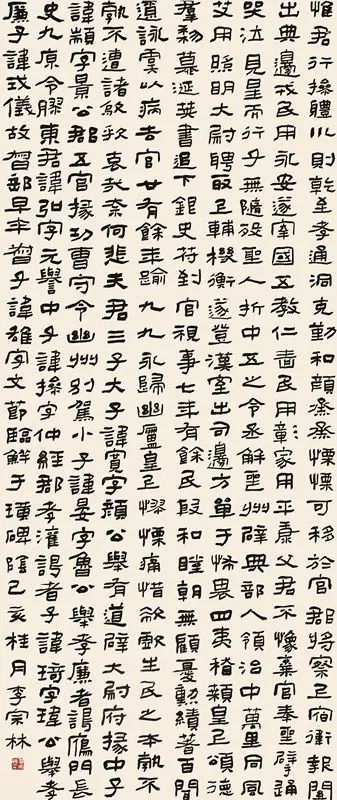 惟君行操體川則乾至孝通洞克勤和顏烝烝慄慄可移於官郡將察以宿衛報關
出典邊戎民用永安遂窗國五教仁嗇民用彰家用平康父君不像棄官奉喪擗踊
哭泣見星而行乎無隨殁聖人折中五之令丞解至州辟典部人領治中萬里同風
艾用照明大尉聘取以輔機衡遂登漢室出司邊方單于怖畏四夷稽顙皇上頌德
羣黎慕涎英書追下銀史符到官視事七年有餘民殷和睦朝無顧憂勳績著百閒
遵詠虞以病去官廿有餘年踰九九永歸幽廬皇上憀慄痛惜欷歔生民之本孰不
孰不遭諸敬欽哀哉奈何悲夫君三子大子諱寬字顏公舉有道辟大尉府掾中子
諱黻字景公郡五官掾功曹守令幽州別駕小子諱晏字魯公舉孝廉者謁鴈門長
史九原令膠東君諱弘字元譽中子諱操字仲經郡孝灌謁者子諱琦字瑋公舉孝
廉子諱戎儀故督郵早卒督子諱雄字文節臨鮮于璜碑陰己亥桂月李宗林